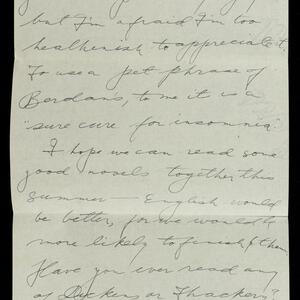 but I'm afraid I'm too
heathenish to appreciate it.
To use a pet phrase of
Berdan's, to me it is a
"sure cure for insomnia."
I hope we can read some
good novels together this
summer — English would
be better, for we would be
more likely to finish them.
Have you ever read any
of Dickens or Thackery?